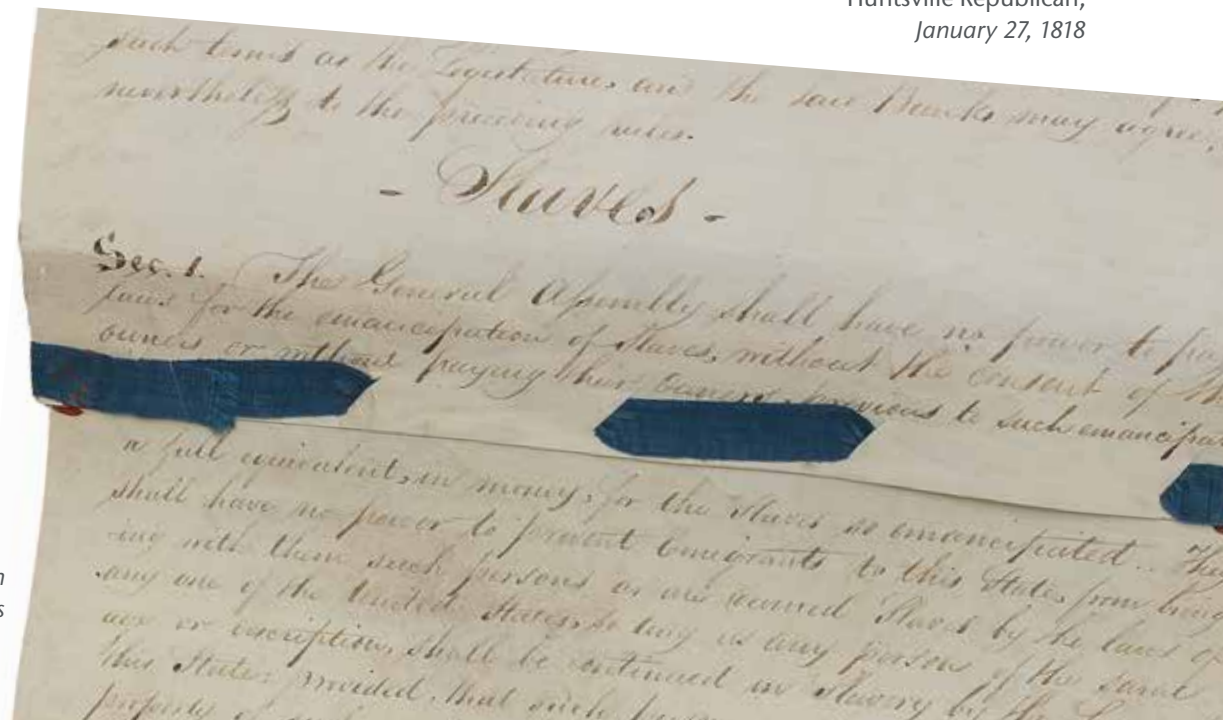 Huntsville Republican,
January 27, 1818
such terms as the Legislature, and the said Banks may agree,
nevertheless to the preceding rules.
- Slaves -
Sec. 1. The General Assembly shall have no power to pa
laws for the emancipation of slaves, without the consent of th
owners or without paying their owners previous to such emancipa
a full equivalent, in money, for the slaves so emancipated. They
shall have no power to prevent emigrants to this State, from bring
-ing with them such persons as are deemed Slaves by the laws of
any one of the United States, so long as any person of the same
age or description, shall be continued in slavery by the
this State: Provided, that such
property of
n
s